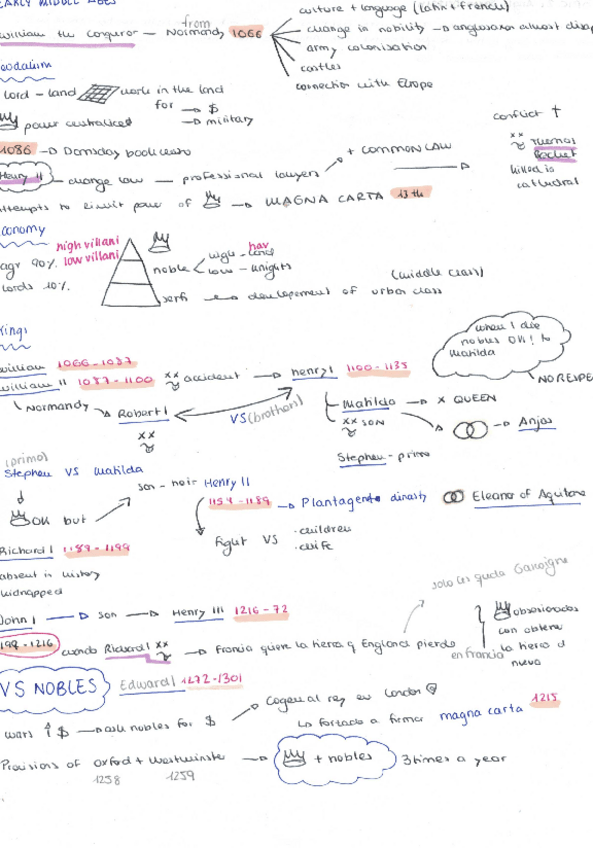 EARLY MIDDLE AGES
culture + language (latin + French)
William the conqueror - from Normandy 1066
change in nobility → anglosaxon almost disap
army colonisation
castles
connection with Europe
eodalism
lord - land work in the land
for → $
→ military
power centralised
conflict
1086 → Domsday book
Thomas
Becket
killed in
cathedral
+ COMMON LAW
Henry II - change law - professional lawyers
attempts to limit power of → MAGNA CARTA 13th
conomy
high villani
low villani
agr 90%
lords 10%
noble
high -
low - knights
serfs
(middle class)
development of urban class
Kings
when I die
nobles OK! to
Matilda
NO RESPE
William 1066-1087
William II 1087-1100 xx accident → Henry I 1100-1135
Normandy → Robert I
VS (brothers)
Matilda → x QUEEN
xx SON
→ Anjou
xx
Stephen - primo
(primo)
Stephen VS Matilda
OK but
son - heir Henry II
1154-1189 → Plantagenet dinasty
Eleanor of Aquitane
fight VS
· children
· wife
Richard I 1189-1199
absent in history
kidnapped
solo les queda Gascoigne
John I → son → Henry III 1216-72
199-1216 cuando Richard I xx → Francia quiere la tierra y England pierde en Francia
obsesionados
con obtener
la tierra d
nuevo
VS NOBLES
Edward I 1272-1301
wars ↑ $ → ask nobles for $
Cogen al rey en London
Lo forzado a firmar magna carta 1215
Provisions of Oxford + Westminster → + nobles 3 times a year
1258 1259